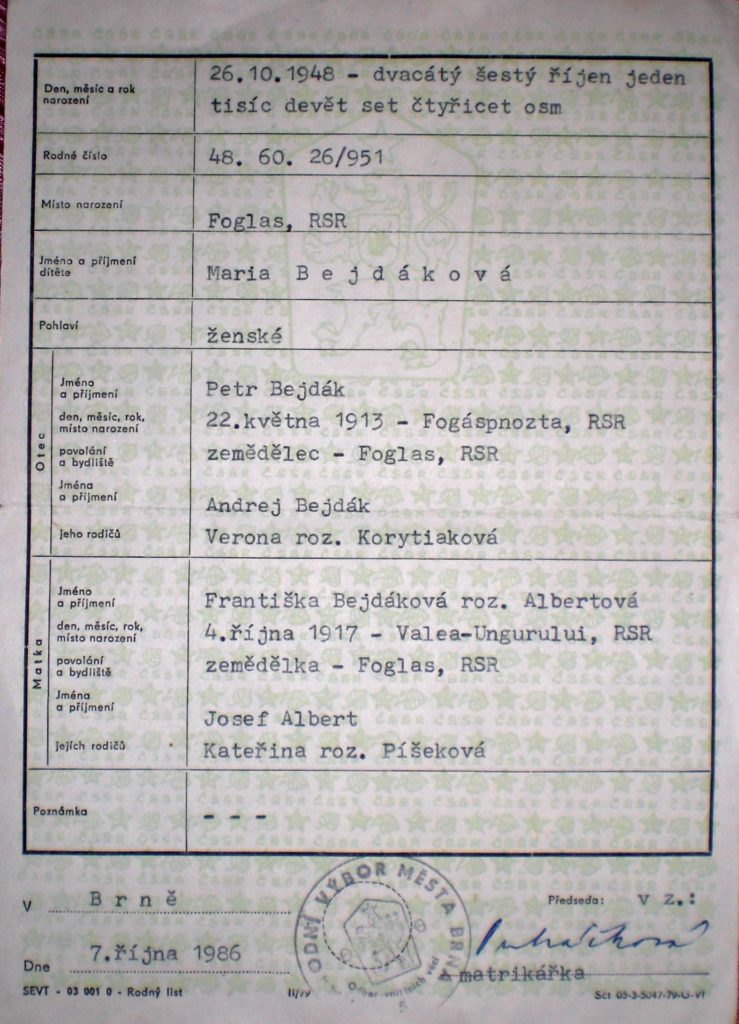 Den, měsíc a rok
narození
26.10.1948 - dvacátý šestý říjen jeden
tisíc devět set čtyřicet osm
Rodné číslo
48. 60. 26/951
Místo narození
Foglas, RSR
Jméno a příjmení
dítěte
Maria B e j d á k o v á
Pohlaví
ženské
Otec
Jméno
a příjmení
Petr Bejdák
den, měsíc, rok,
místo narození
22.května 1913 - Fogáspnozta, RSR
povolání
a bydliště
zemědělec - Foglas, RSR
Jména
a příjmení
Andrej Bejdák
jeho rodičů
Verona roz. Korytiaková
Matka
Jméno
a příjmení
Františka Bejdáková roz. Albertová
den, měsíc, rok,
místo narození
4.října 1917 - Valea-Ungurului, RSR
povolání
a bydliště
zemědělka - Foglas, RSR
Jména
a příjmení
Josef Albert
jejich rodičů
Kateřina roz. Píšeková
Poznámka
- - -
V B r n ě
Předseda: v z.:
ODNÍ VÝBOR MĚSTA BRN
Odbor vnitřních věcí
5
Dne 7.října 1986
matrikářka
SEVT - 03 001 0 - Rodný list
II/79
Sčt 05-3-5047-79-Ú-VT